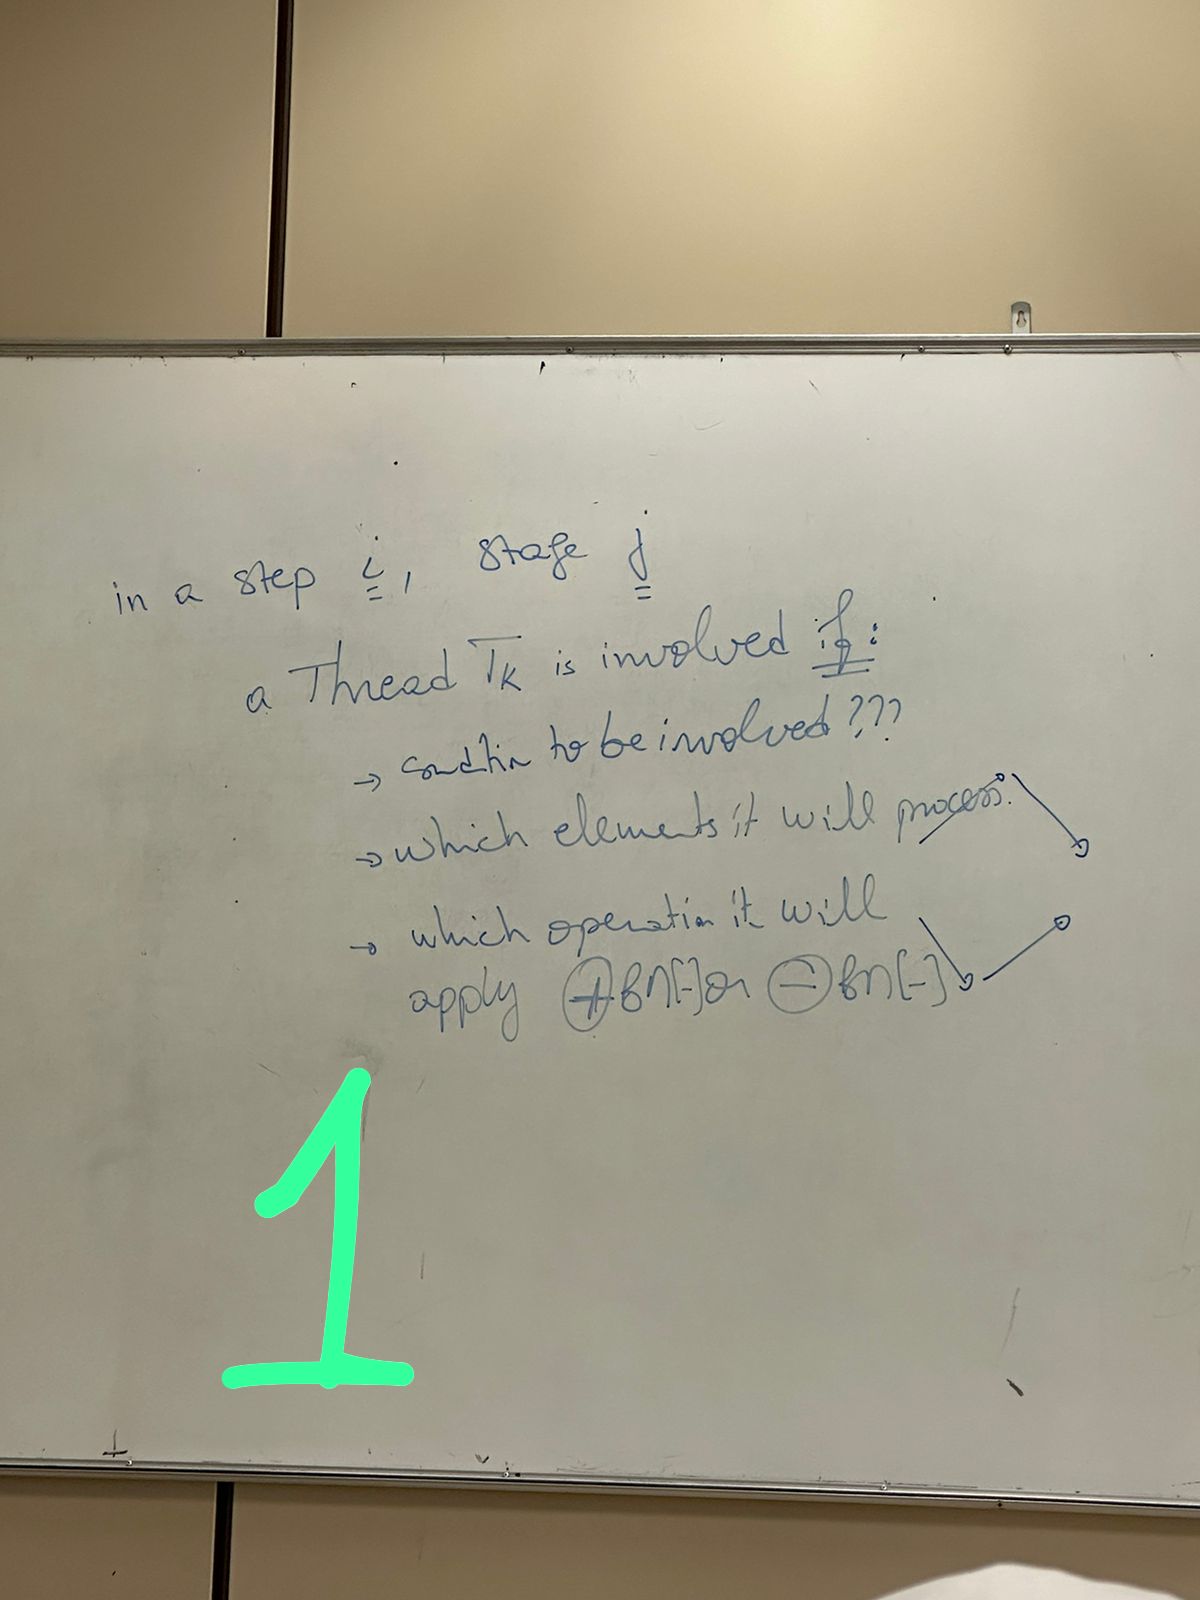 in a step i, stage j
a Thread Tk is involved if:
→ condtin to be involved???
→ which elements it will process.
→ which operatin it will
apply ⊕ BM[-] or ⊖ BM[-]
1